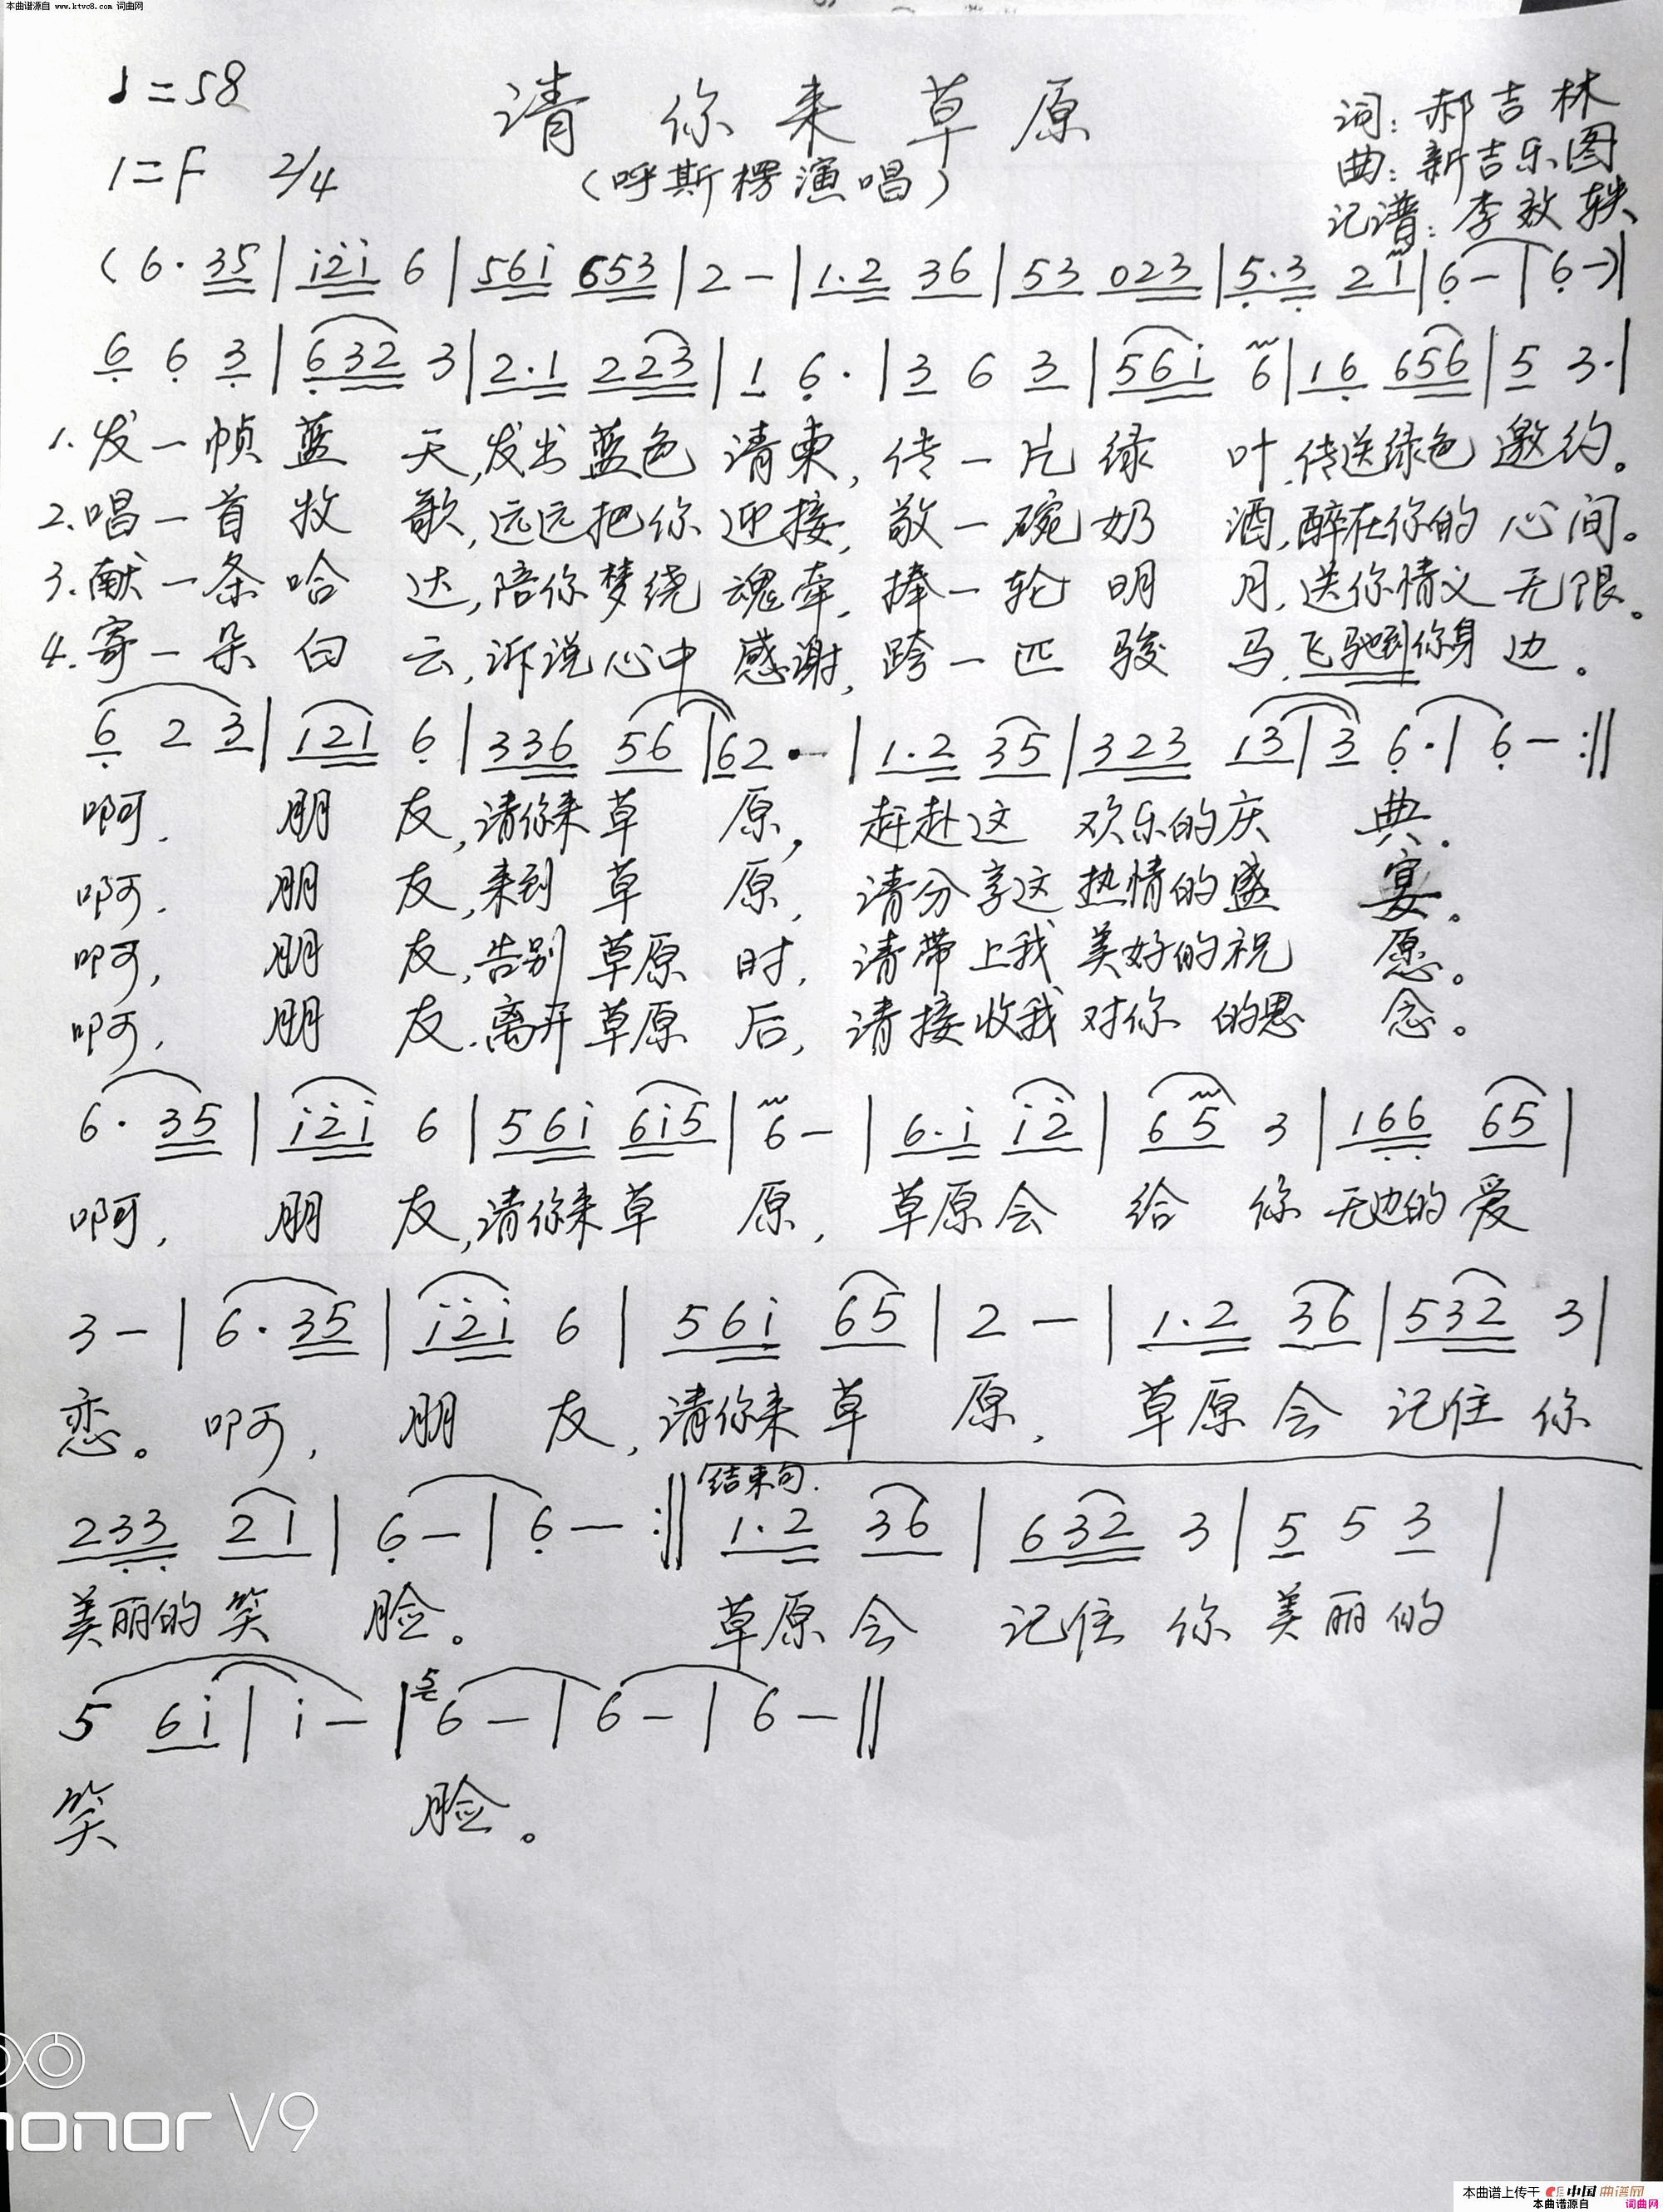 本曲谱源自 www.ktvc8.com 词曲网
♩=58
请你来草原
词:郝吉林
1=F 2/4
(呼斯楞演唱)
曲:新吉乐图
记谱:李效轶
(6·35|i2i 6|56i 653|2-|1.2 36|53 023|5.3 21|6-|6-)|
6 6 3|632 3|2.1 223|1 6·|3 6 3|56i 6|16 656|5 3·|
1.发一帧蓝天,发出蓝色请柬,传一片绿叶,传送绿色邀约。
2.唱一首牧歌,远远把你迎接,敬一碗奶酒,醉在你的心间。
3.献一条哈达,陪你梦绕魂牵,捧一轮明月,送你情义无限。
4.寄一朵白云,诉说心中感谢,跨一匹骏马,飞驰到你身边。
6 2 3|121 6|336 56|62·-|1.2 35|323 13|3 6·|6-:‖
啊,朋友,请你来草原,赶赴这欢乐的庆典。
啊,朋友,来到草原,请分享这热情的盛宴。
啊,朋友,告别草原时,请带上我美好的祝愿。
啊,朋友,离开草原后,请接收我对你的思念。
6·35|i2i 6|56i 6i5|6-|6.i i2|65 3|166 65|
啊,朋友,请你来草原,草原会给你无边的爱
3-|6·35|i2i 6|56i 65|2-|1.2 36|532 3|
恋。啊,朋友,请你来草原,草原会记住你
结束句.
233 21|6-|6-:‖1.2 36|632 3|5 5 3|
美丽的笑脸。草原会记住你美丽的
5 6i|i-|5 6-|6-|6-‖
笑脸。
honor V9
本曲谱上传于 中国曲谱网
本曲谱源自 词曲网